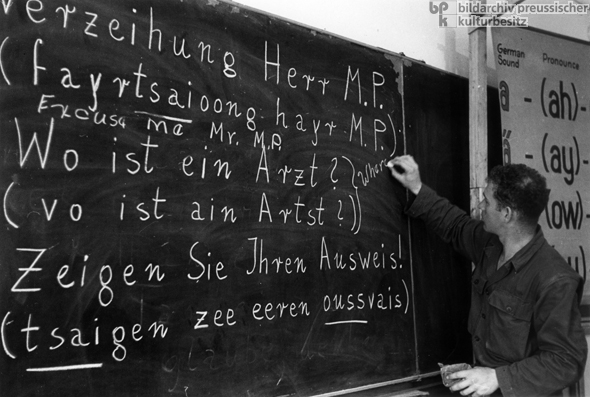 bpk bildarchiv preussischer
kulturbesitz
Verzeihung Herr M.P.
(fayrtsaioong hayr M.P.)
Excuse me Mr. M.P.
Wo ist ein Arzt? (where
(vo ist ain Artst?)
Zeigen Sie Ihren Ausweis!
(tsaigen zee eeren oussvais)
German Sound Pronounce
a - (ah)
- (ay)
(ow)